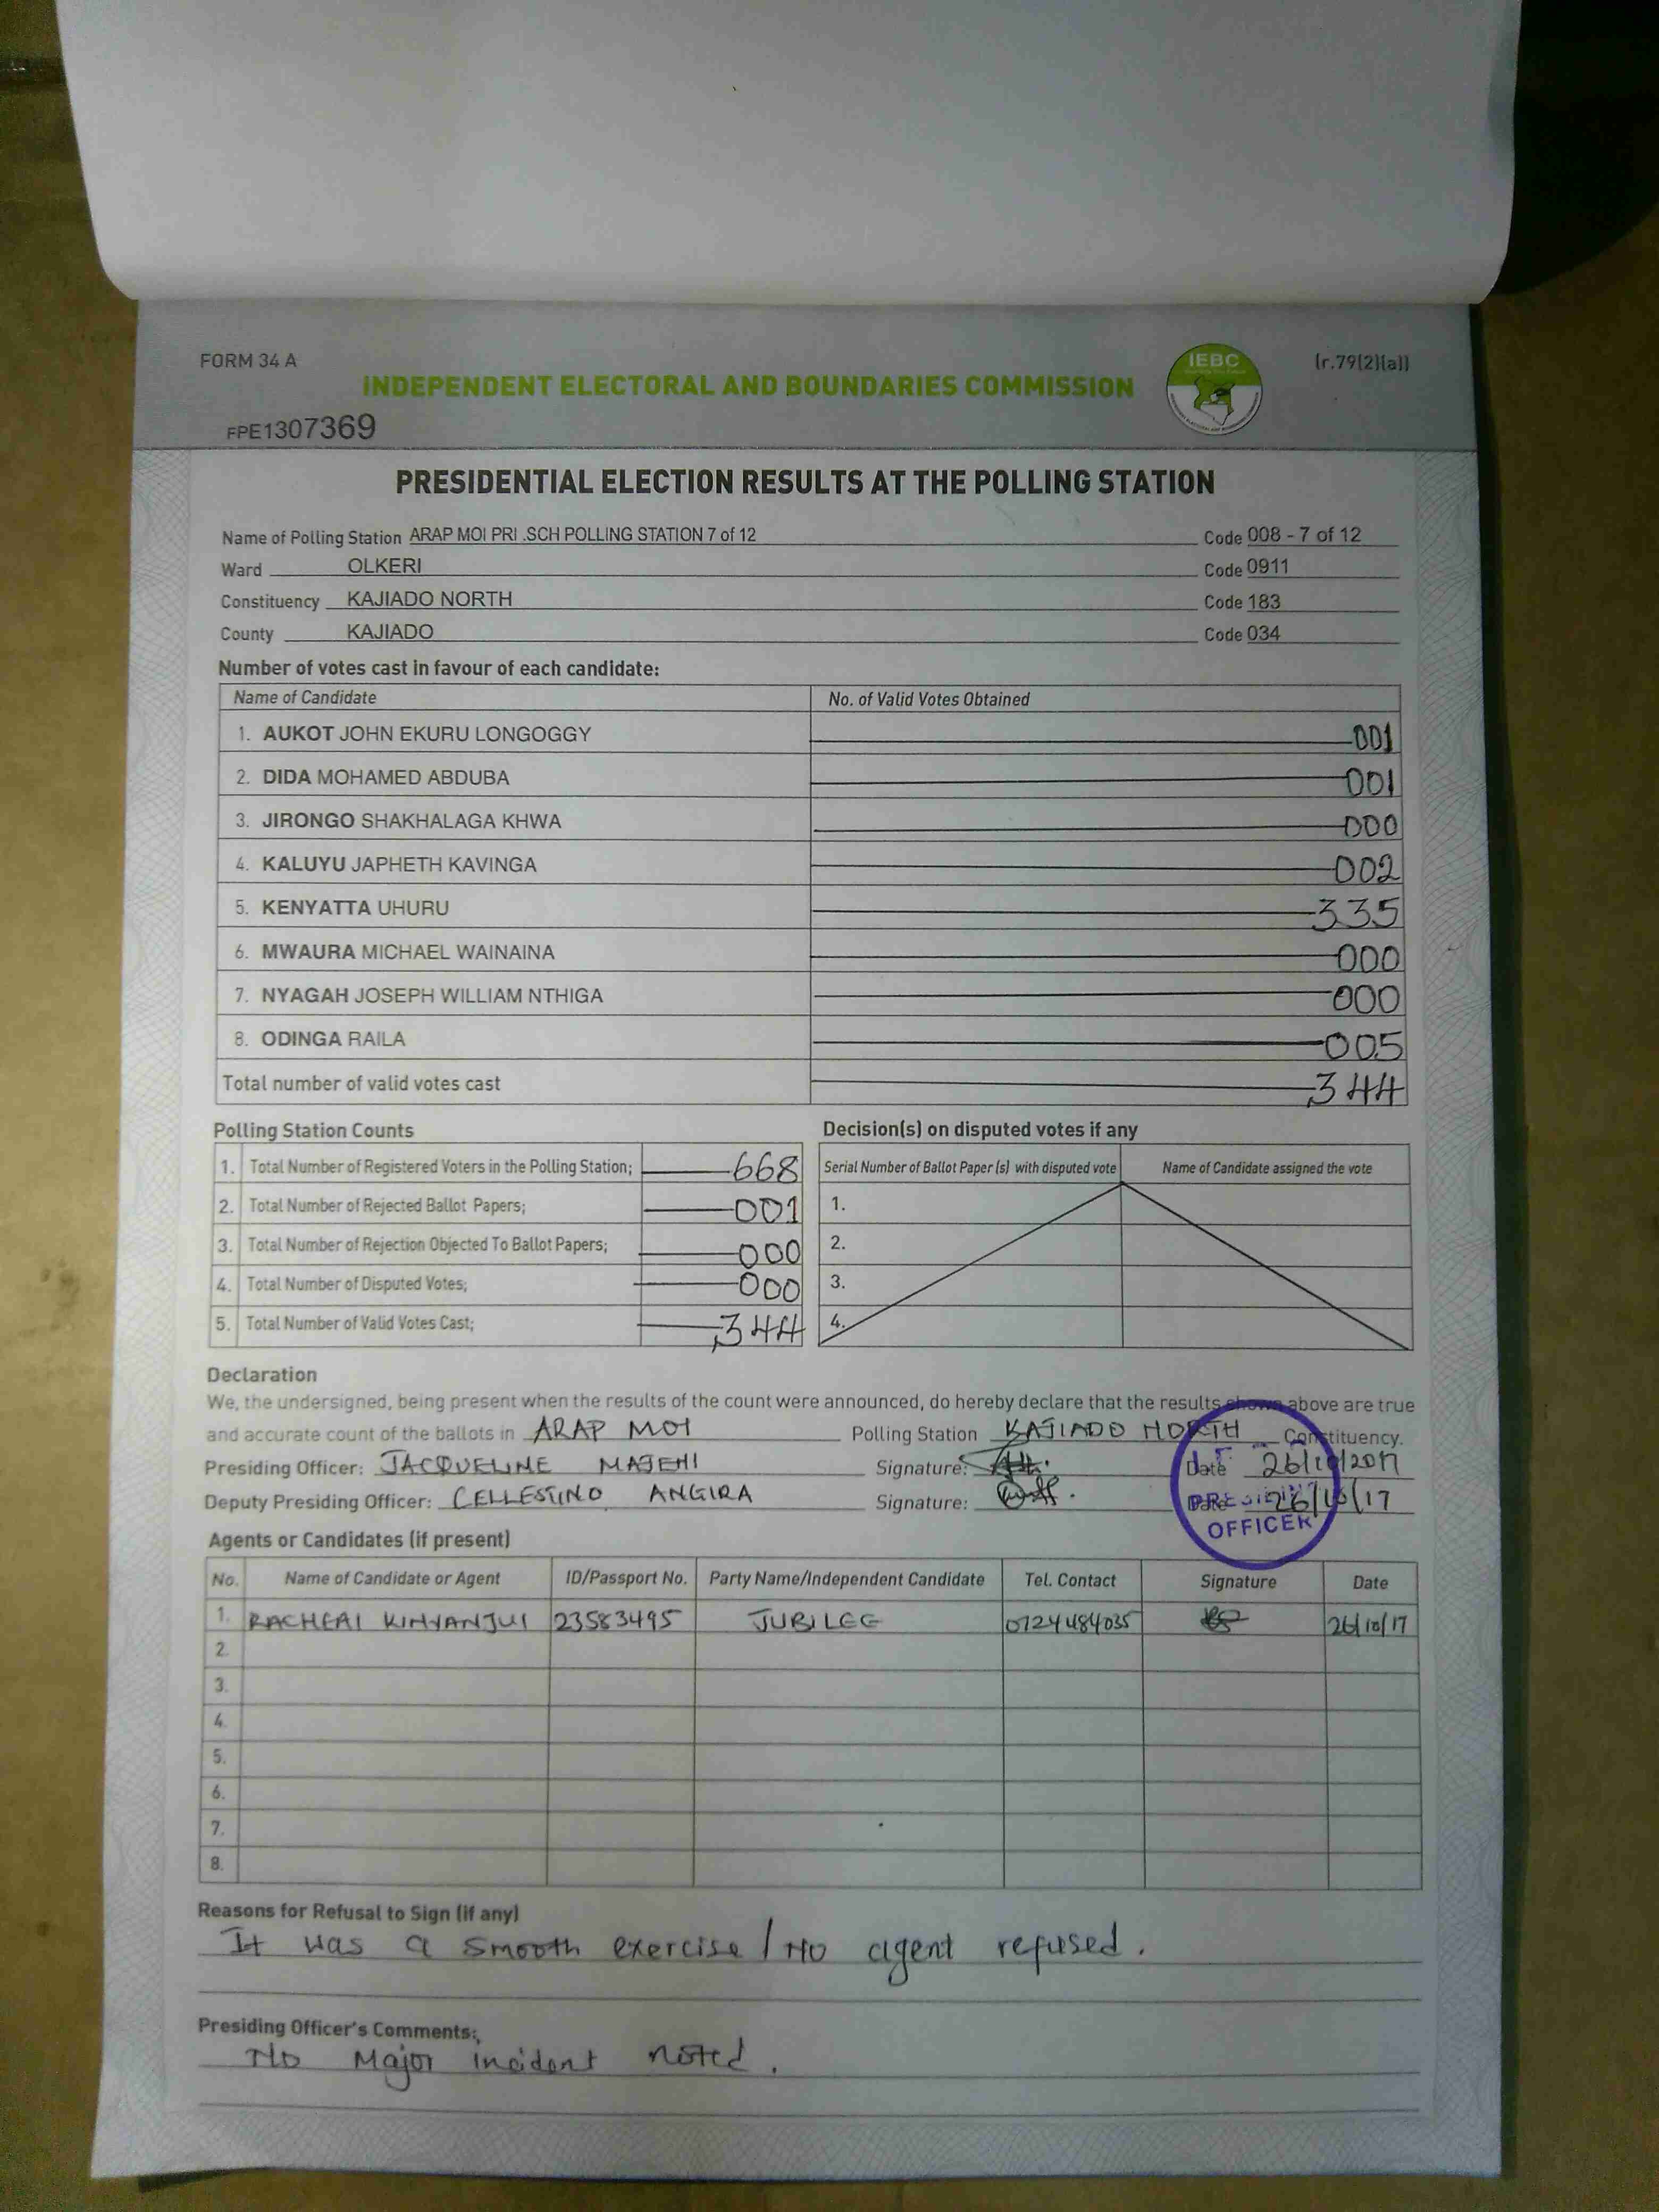 FORM 34 A
(r.79(2)(a))
IEBC
INDEPENDENT ELECTORAL AND BOUNDARIES COMMISSION
FPE1307369
PRESIDENTIAL ELECTION RESULTS AT THE POLLING STATION
Name of Polling Station ARAP MOI PRI .SCH POLLING STATION 7 of 12 Code 008 - 7 of 12
Ward OLKERI Code 0911
Constituency KAJIADO NORTH Code 183
County KAJIADO Code 034
Number of votes cast in favour of each candidate:
Name of Candidate No. of Valid Votes Obtained
1. AUKOT JOHN EKURU LONGOGGY 001
2. DIDA MOHAMED ABDUBA 001
3. JIRONGO SHAKHALAGA KHWA 000
4. KALUYU JAPHETH KAVINGA 002
5. KENYATTA UHURU 335
6. MWAURA MICHAEL WAINAINA 000
7. NYAGAH JOSEPH WILLIAM NTHIGA 000
8. ODINGA RAILA 005
Total number of valid votes cast 344
Polling Station Counts
1. Total Number of Registered Voters in the Polling Station; 668
2. Total Number of Rejected Ballot Papers; 001
3. Total Number of Rejection Objected To Ballot Papers; 000
4. Total Number of Disputed Votes; 000
5. Total Number of Valid Votes Cast; 344
Decision(s) on disputed votes if any
Serial Number of Ballot Paper (s) with disputed vote Name of Candidate assigned the vote
1.
2.
3.
4.
Declaration
We, the undersigned, being present when the results of the count were announced, do hereby declare that the results shown above are true
and accurate count of the ballots in ARAP MOI Polling Station KAJIADO NORTH Constituency.
Presiding Officer: JACQUELINE Signature: Date 26/10/2017
Deputy Presiding Officer: CELLESTINO ANGIRA Signature: Date 26/10/17
PRESIDING
OFFICER
Agents or Candidates (if present)
No. Name of Candidate or Agent ID/Passport No. Party Name/Independent Candidate Tel. Contact Signature Date
1. RACHEAL KINYANJUI 23583495 JUBILEE 0724484035 26/10/17
2.
3.
4.
5.
6.
7.
8.
Reasons for Refusal to Sign (if any)
It was a smooth exercise / No agent refused.
Presiding Officer's Comments:
No Major incident noted.